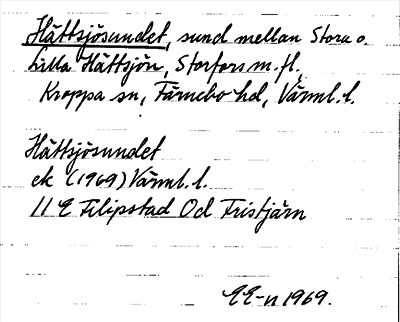 Hättsjösundet, sund mellan Stora o.
Lilla Hättsjön, Storfors m. fl.
Kroppa sn, Färnebo hd, Värml. l.
Hättsjösundet
ek (1969) Värml. l.
11 E Filipstad Od Tristjärn
EE-n 1969.